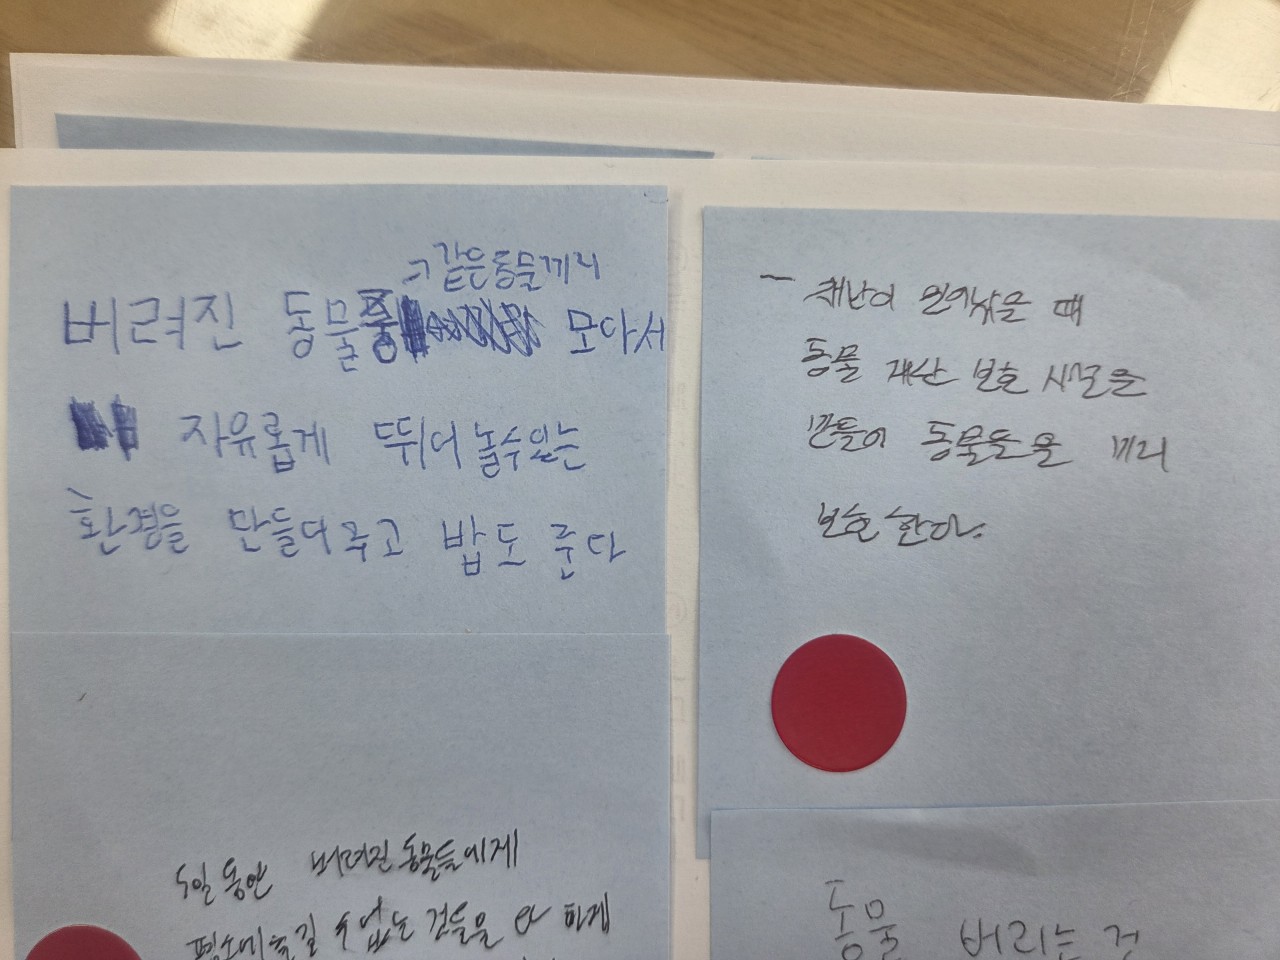 → 같은 동물끼리
버려진 동물 모아서
자유롭게 뛰어 놀수있는
환경을 만들어 주고 밥도 준다
5일 동안 버려진 동물들에게
평소에 즐길 수 없는 것들을 하게
- 재난이 일어났을 때
동물 재난 보호 시설을
만들어 동물들을
보호 한다.
동물 버리는 것